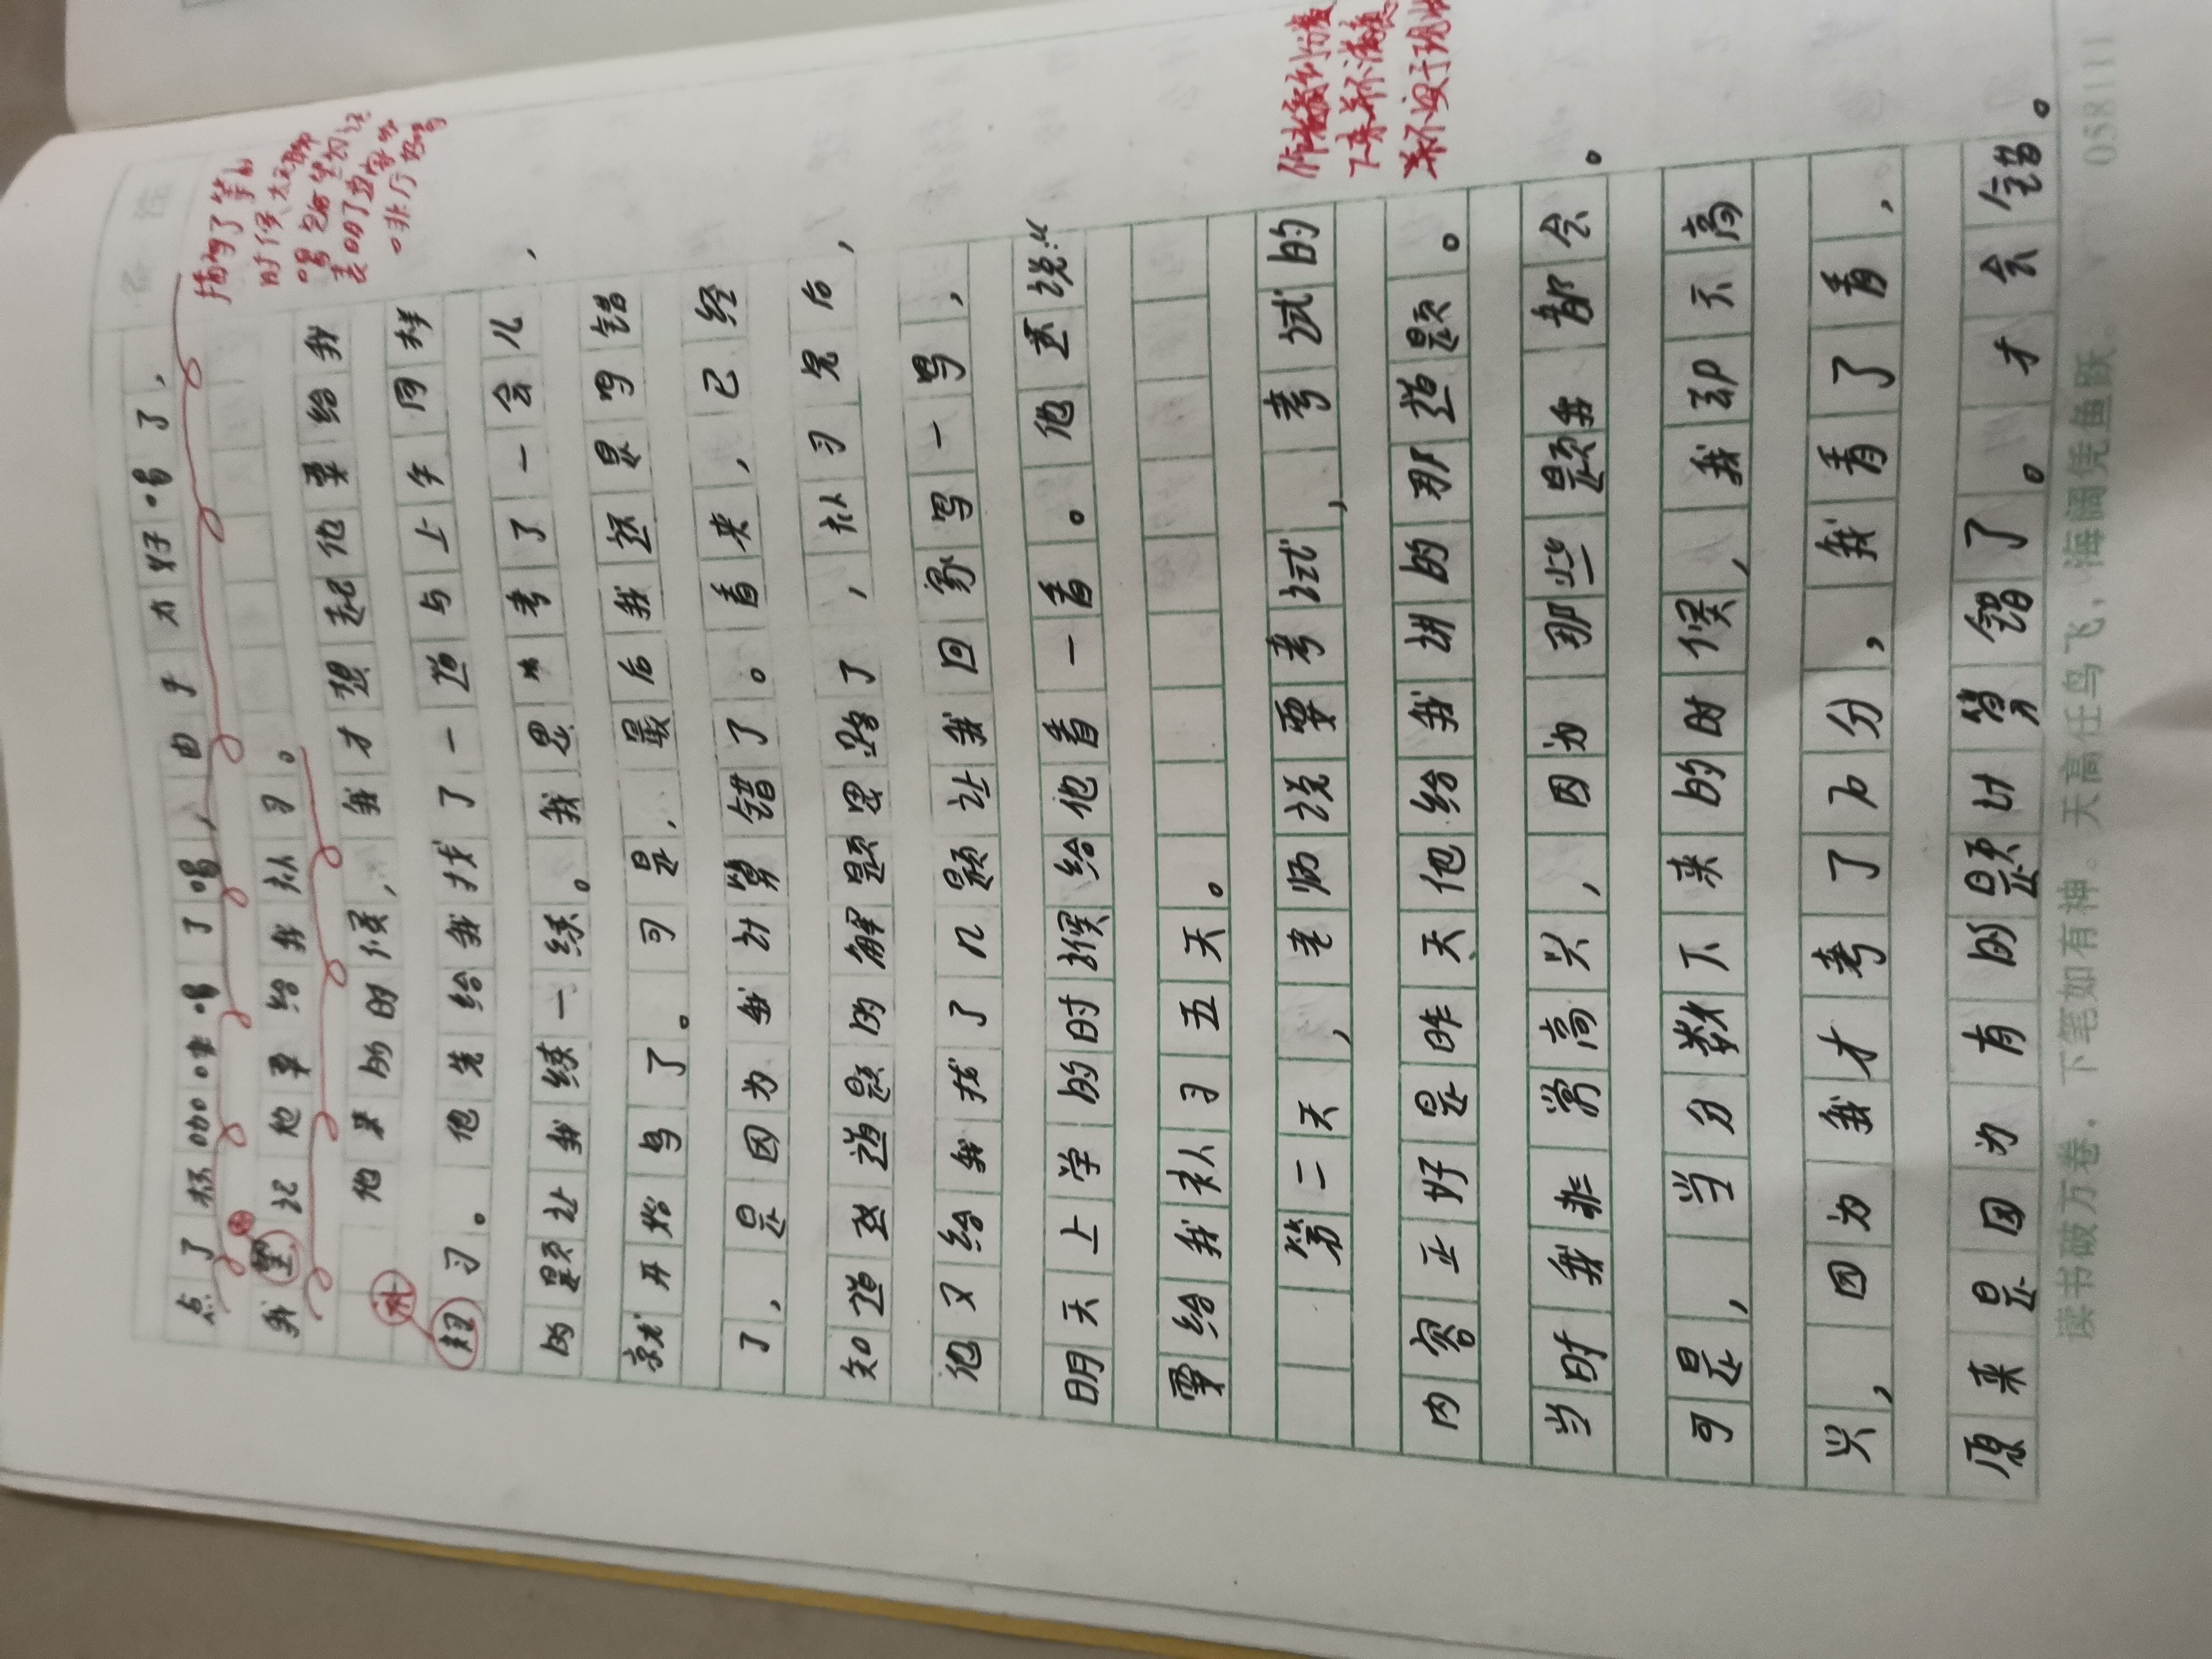 点了杯咖啡喝了喝，由于太好喝了，
我望记他要给我补习。
他来的时候，我才想起他要给我
补
习。他先给我找了一道与上午同样
的题让我练一练。我思考了一会儿，
就开始写了。可是，最后我还是写错
了，是因为我计算错了。看来，已经
知道这道题的解题思路了，补习完后，
他又给我找了几题让我回家写一写，
明天上学的时候给他看一看。他还说：“
要给我补习五天。
第二天，老师说要考试，考试的
内容正好是昨天他给我讲的那道题。
当时我非常高兴，因为那些题我都会。
可是，当分数下来的时候，我却不高
兴，因为我才考了分，我看了看，
原来是因为有的题计算错了。才会错。
描写了等他
的时候太
喝
表明了
非
作者
下来并不满意
并不
读书破万卷，下笔如有神。天高任鸟飞，海阔凭鱼跃
058111